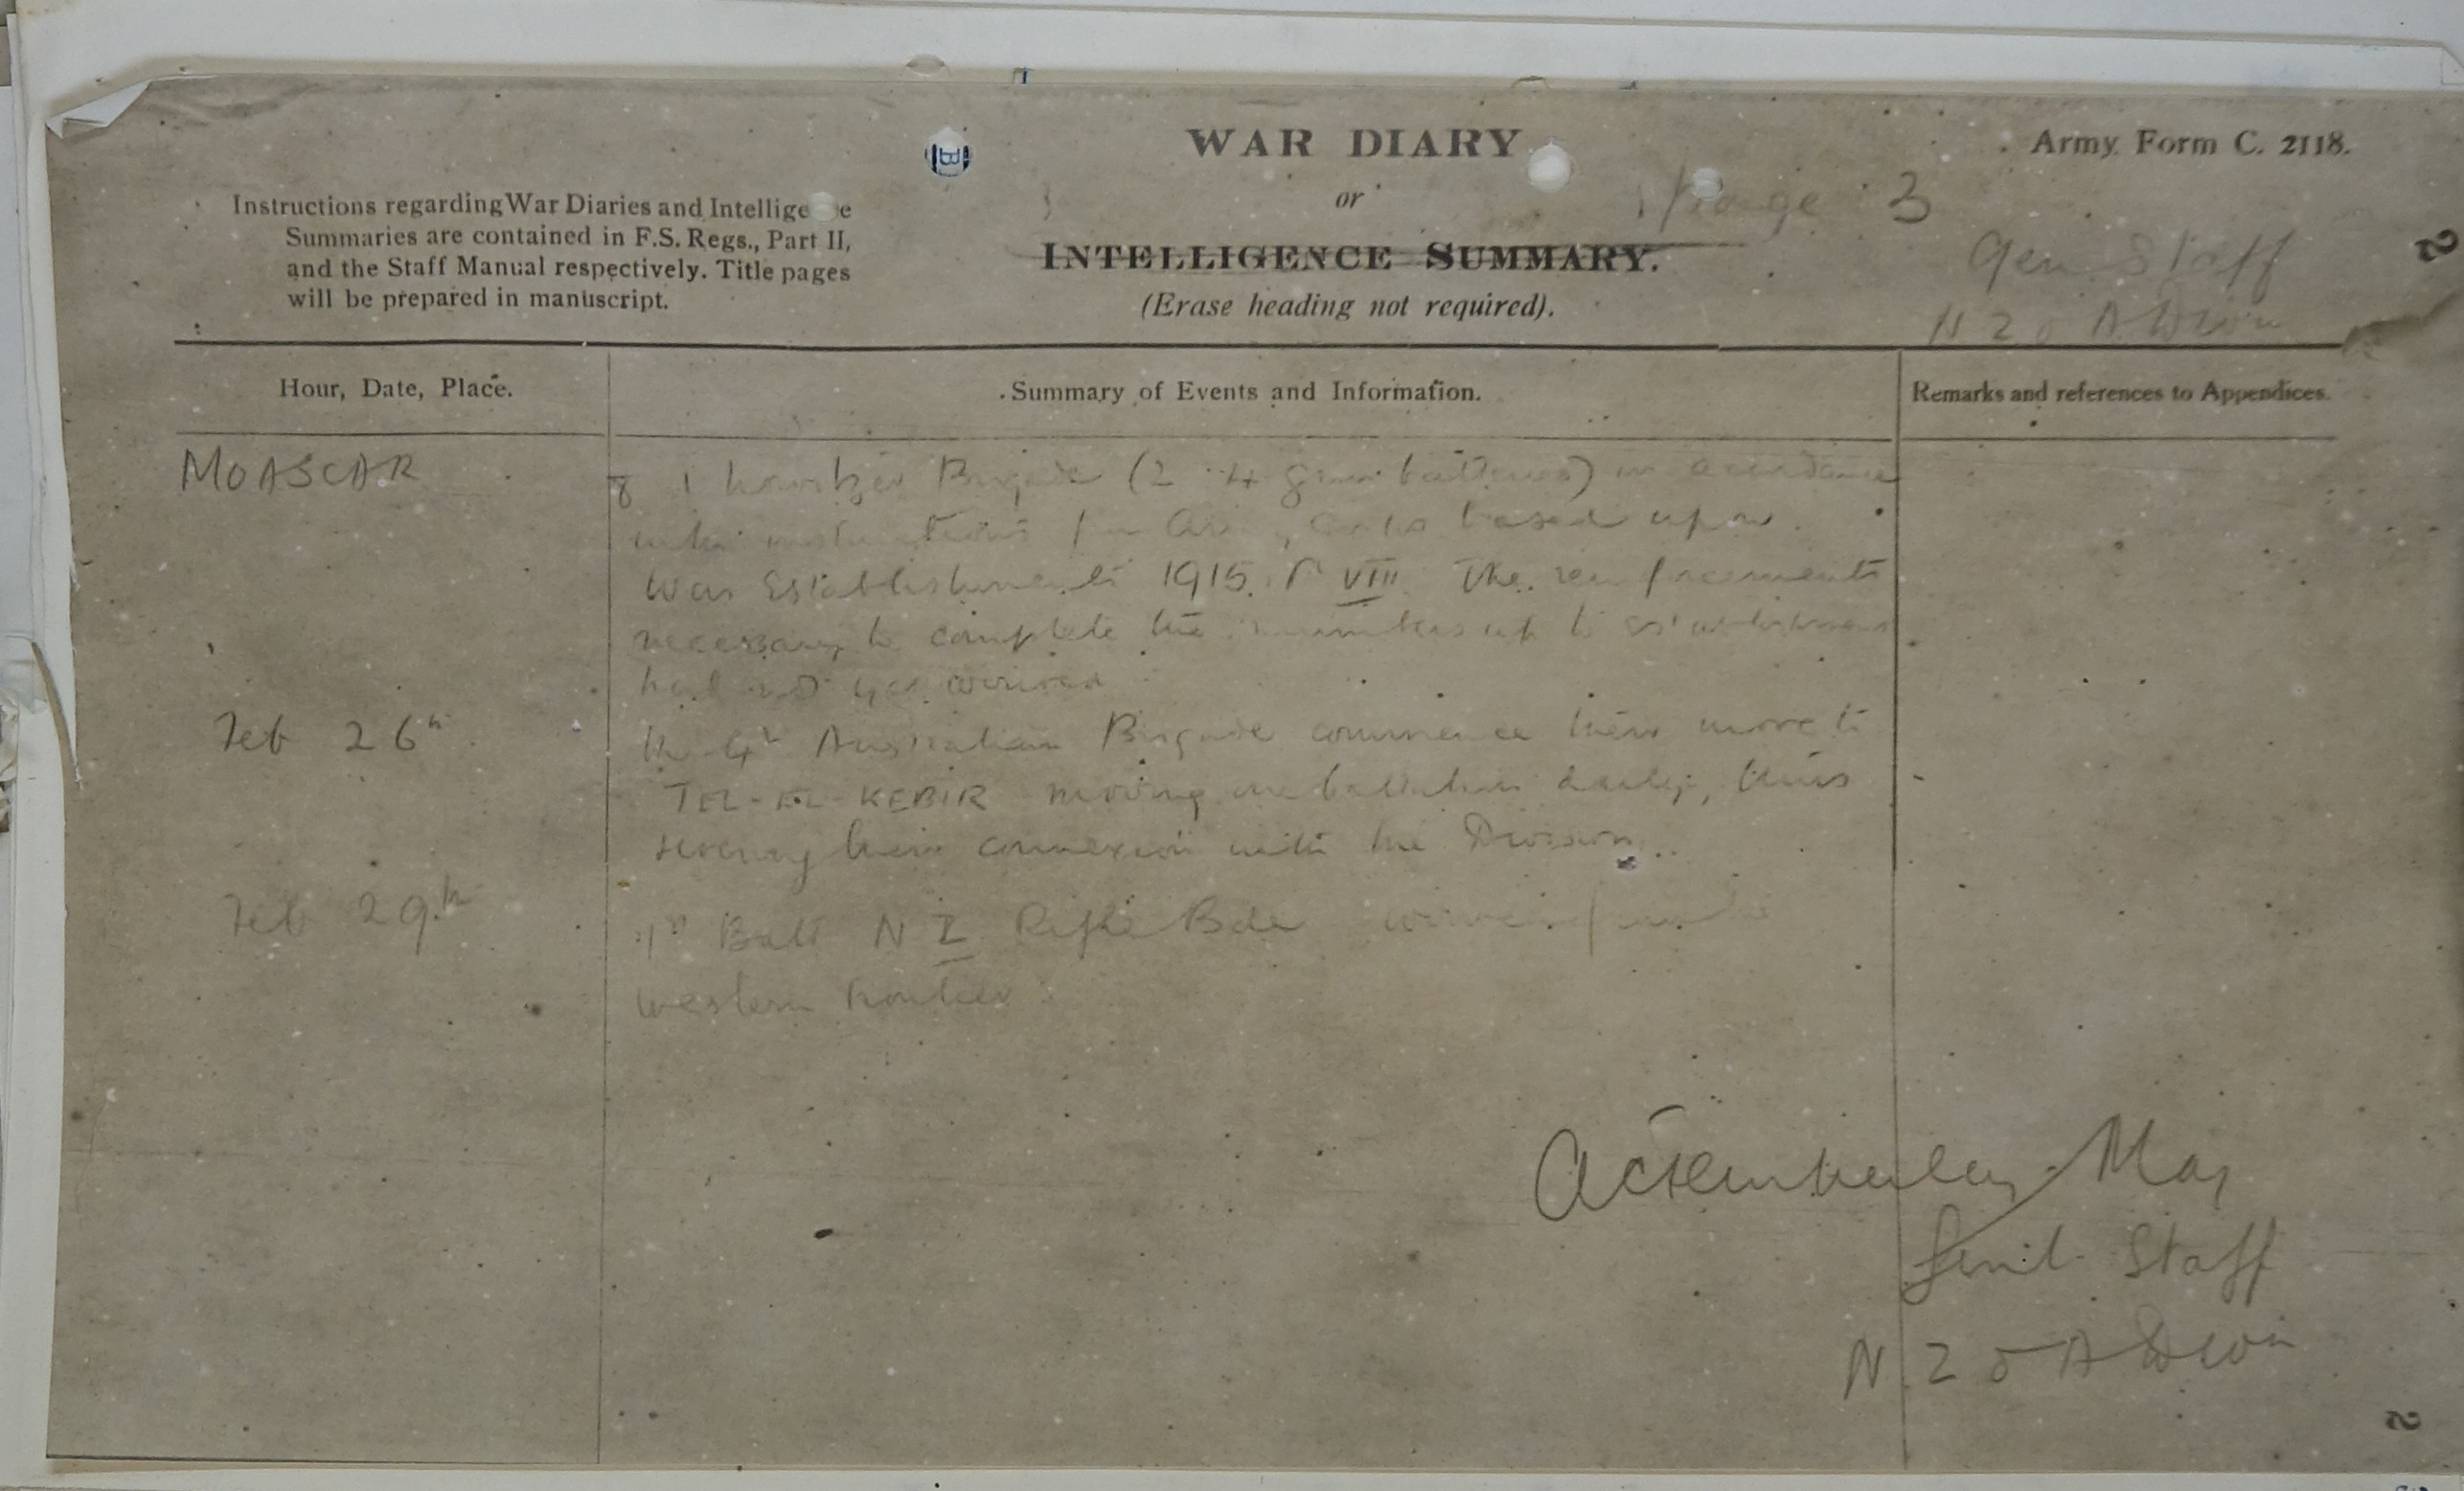 WAR DIARY
or
INTELLIGENCE SUMMARY.
(Erase heading not required).
Army Form C. 2118.
Instructions regarding War Diaries and Intellige e
Summaries are contained in F.S. Regs., Part II,
and the Staff Manual respectively. Title pages
will be prepared in manuscript.
Page 3
Gen Staff
N Z & A Divn
2
Hour, Date, Place.
Summary of Events and Information.
Remarks and references to Appendices.
MOASCAR
& 1 howitzer Brigade (2 4 gun batteries) in accordance
with instructions based upon
War Establishments 1915 P VIII. The reinforcements
necessary to complete the numbers up to establishment
had not yet arrived
Feb 26th
The 4th Australian Brigade commence their move to
TEL-EL-KEBIR moving one battalion daily, thus
severing their connexion with the Division.
Feb 29th
1st Batt N Z Rifle Bde arrived from the
western frontier
ACTemperley Maj
Genl Staff
N Z & A Divn
2